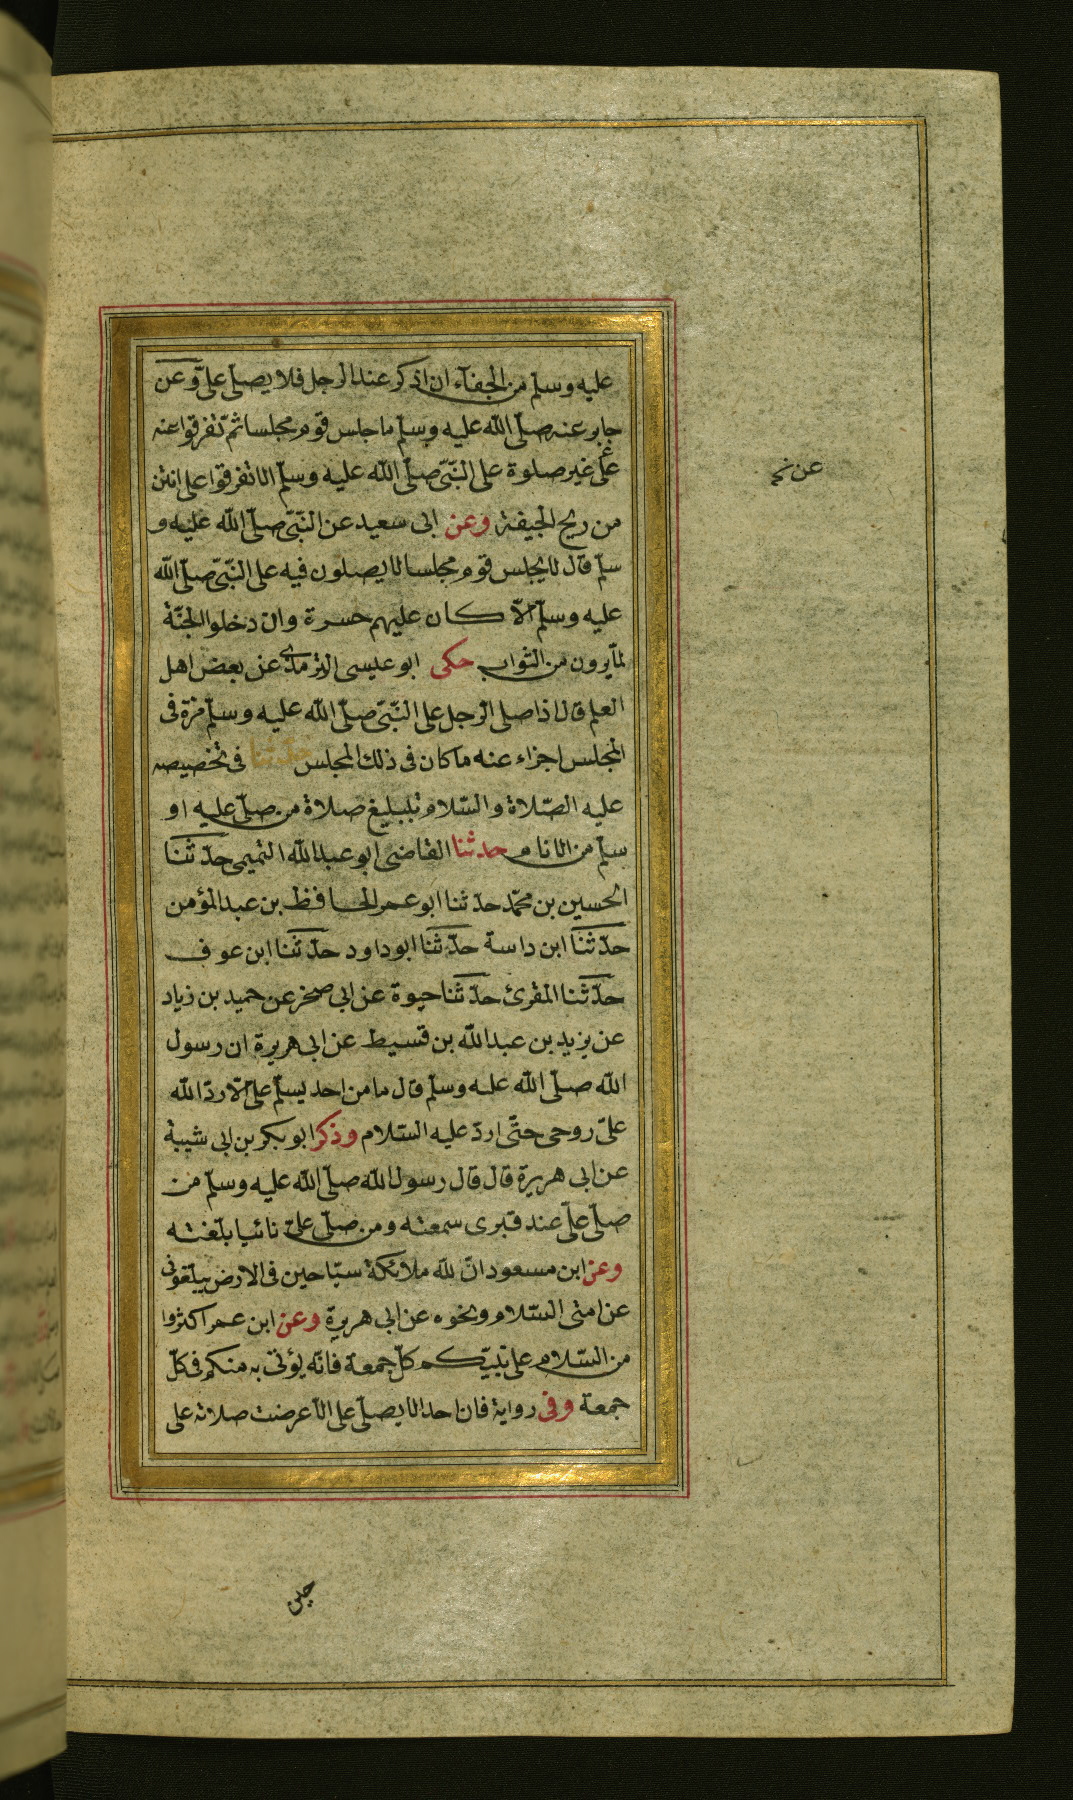 عليه وسلم من الجفاء ان اذكر عند الرجل فلا يصلى علىّ وعن
جابر عنه صلّى الله عليه وسلّم ما جلس قوم مجلسا ثمّ تفرقوا عنه
على غير صلوة على النّبىّ صلّى الله عليه وسلّم الا تفرقوا على انتن
من ريح الجيفة وعن ابى سعيد عن النّبىّ صلّى الله عليه و
سلّم قال لا يجلس قوم مجلسا لا يصلون فيه على النّبىّ صلّى الله
عليه وسلّم الاّ كان عليهم حسرة وان دخلوا الجنّة
لما يرون من الثواب حكى ابو عيسى الترمذى عن بعض اهل
العلم قال اذا صلى الرجل على النّبىّ صلّى الله عليه وسلّم مرة فى
المجلس اجزاء عنه ما كان فى ذلك المجلس فى تخصيصه
عليه الصّلاة والسّلام بتبليغ صلاة من صلّى عليه او
سلّم من الانام حدثنا القاضى ابو عبد الله التميمى حدّثنا
الحسين بن محمّد حدّثنا ابو عمر الحافظ بن عبد المؤمن
حدّثنا ابن داسة حدّثنا ابو داود حدّثنا ابن عوف
حدّثنا المقرئ حدّثنا حيوة عن ابى صخر عن حميد بن زياد
عن يزيد بن عبد الله بن قسيط عن ابى هريرة ان رسول
الله صلّى الله عليه وسلّم قال ما من احد يسلّم علىّ الّا ردّ الله
علىّ روحى حتّى اردّ عليه السّلام وذكر ابو بكر بن ابى شيبة
عن ابى هريرة قال قال رسول الله صلّى الله عليه وسلّم من
صلّى علىّ عند قبرى سمعته ومن صلّى علىّ نائيا بلّغته
وعن ابن مسعود انّ لله ملائكة سيّاحين فى الارض يبلّغونى
عن امتى السّلام ونحوه عن ابى هريرة وعن ابن عمر اكثروا
من السّلام على نبيّكم كلّ جمعة فانّه يؤتى به منكم فى كلّ
جمعة وفى رواية فان احدا لا يصلّى علىّ الّا عرضت صلاته على
عن
حين